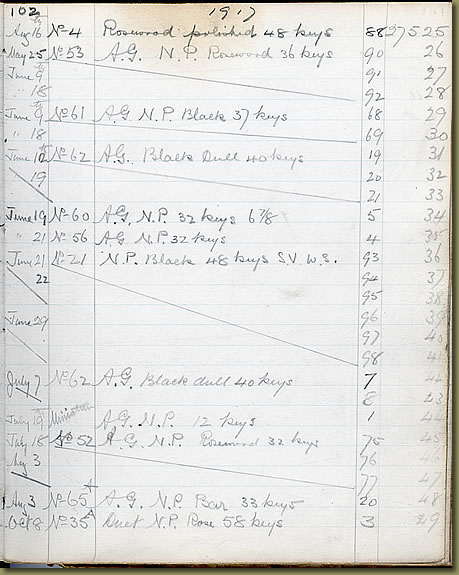 102 1917
Aug 16 No 4 Rosewood polished 48 keys 88 27525
May 25 No 53 A.G. N.P. Rosewood 36 keys 90 26
June 9 91 27
" 18 92 28
June 9 No 61 A.G N.P. Black 37 keys 68 29
" 18 69 30
June 12 No 62 A.G. Black Dull 40 keys 19 31
19 20 32
21 33
June 19 No 60 A.G. N.P. 32 keys 6 7/8 5 34
" 21 No 56 A.G N.P. 32 keys 4 35
June 21 No 21 N.P. Black 48 keys S.V. W.S. 93 36
22 94 37
95 38
June 29 96 39
97 40
98 41
July 7 No 62 A.G. Black dull 40 keys 7
8 43
July 19 Miniature A.G. N.P. 12 keys 1 44
July 18 No 52 A.G. N.P. Rosewood 32 keys 75 45
Aug 3 76 46
77 47
Aug 3 No 65 A.G. N.P. Bar 33 keys 20 48
Oct 8 No 35A Duet N.P. Rose 58 keys 3 49